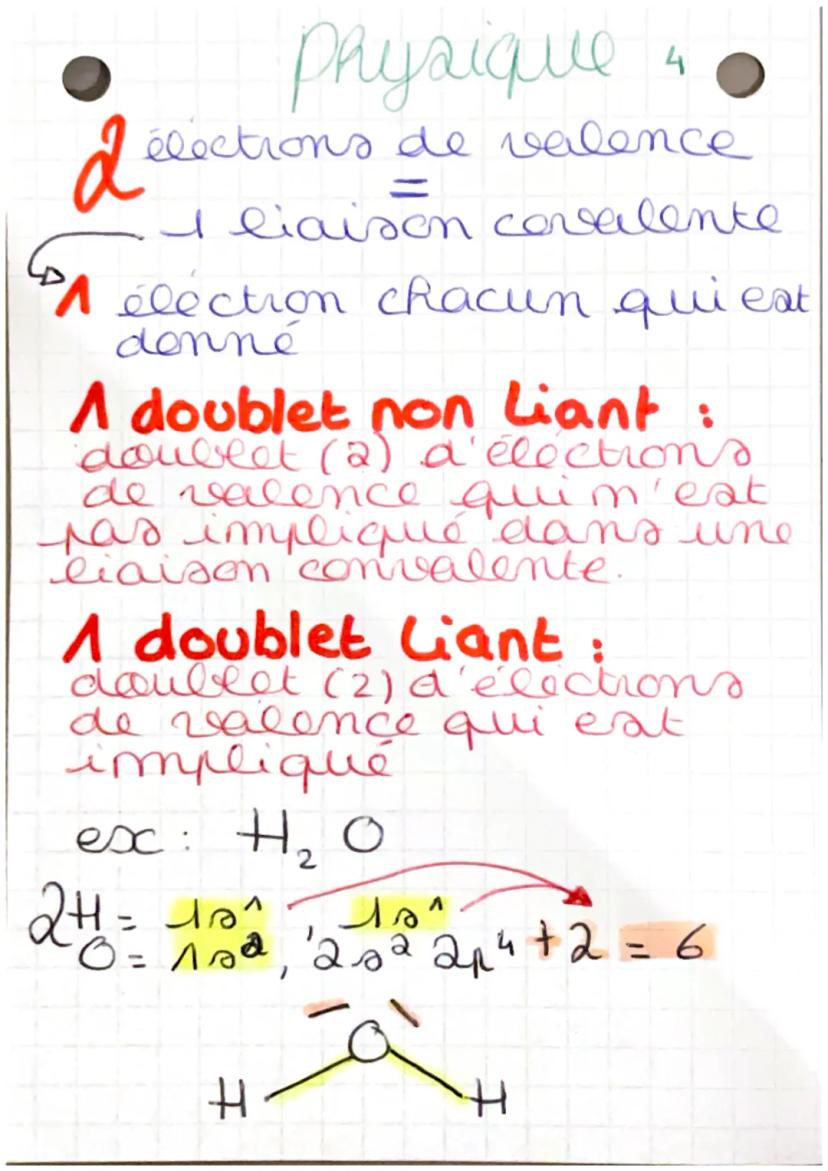 Physique 4
2 électrons de valence
=
1 liaison covalente
1 électron chacun qui est
donné
1 doublet non liant :
doublet (2) d'électrons
de valence qui n'est
pas impliqué dans une
liaison convalente.
1 doublet liant :
doublet (2) d'électrons
de valence qui est
impliqué
ex : H₂O
2H = 1s¹, 1s¹
O = 1s², 2s² 2p⁴ +2 = 6
O
H H